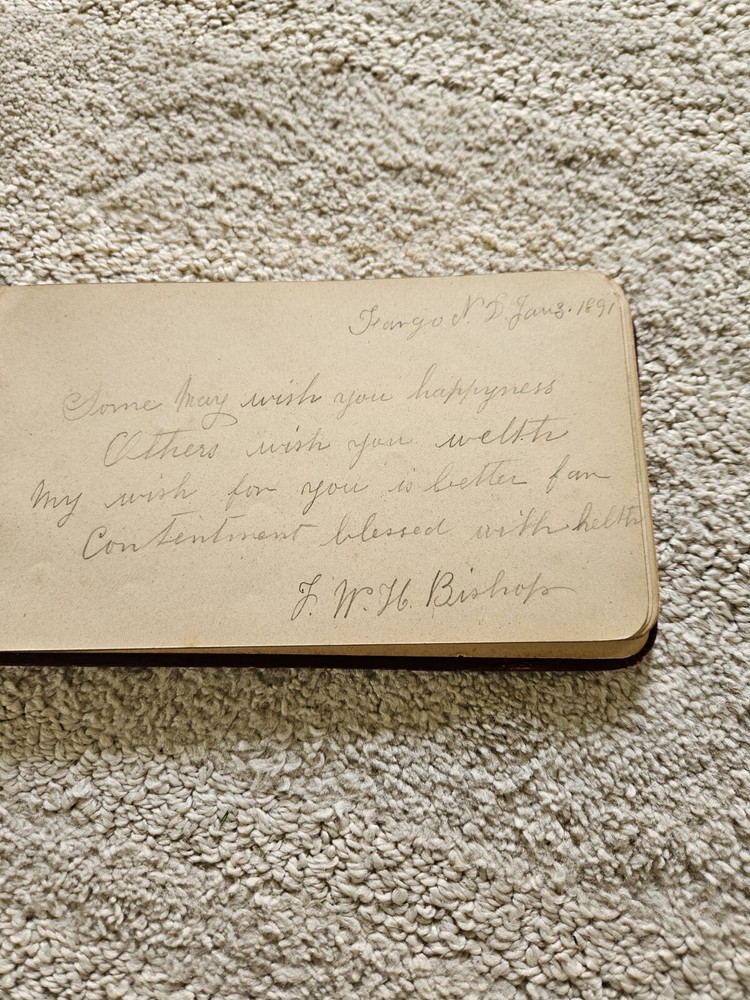 Fargo N. D. Jan 3. 1891
Some may wish you happyness
Others wish you welth
My wish for you is better far
Contentment blessed with helth
F. W. H. Bishop